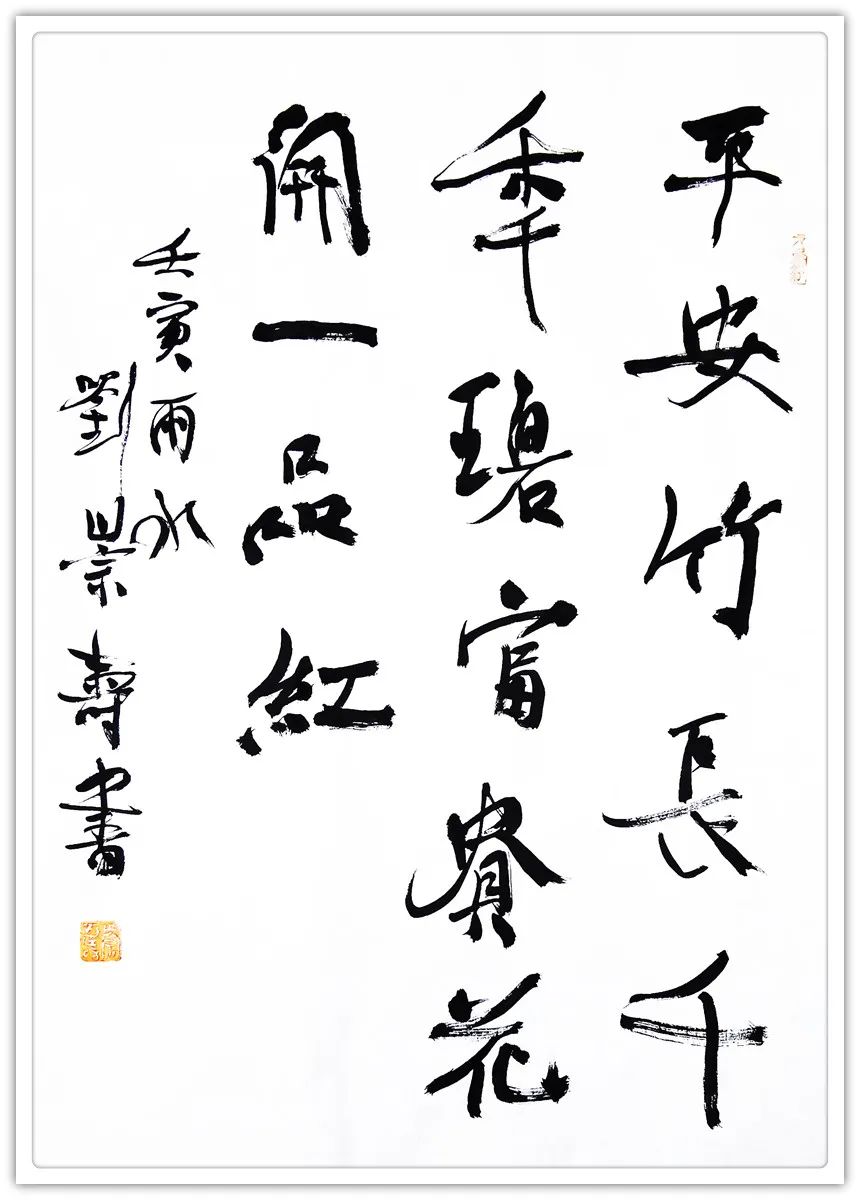 平安竹長千
秊碧富貴花
開一品紅
壬寅雨水
劉崇壽書